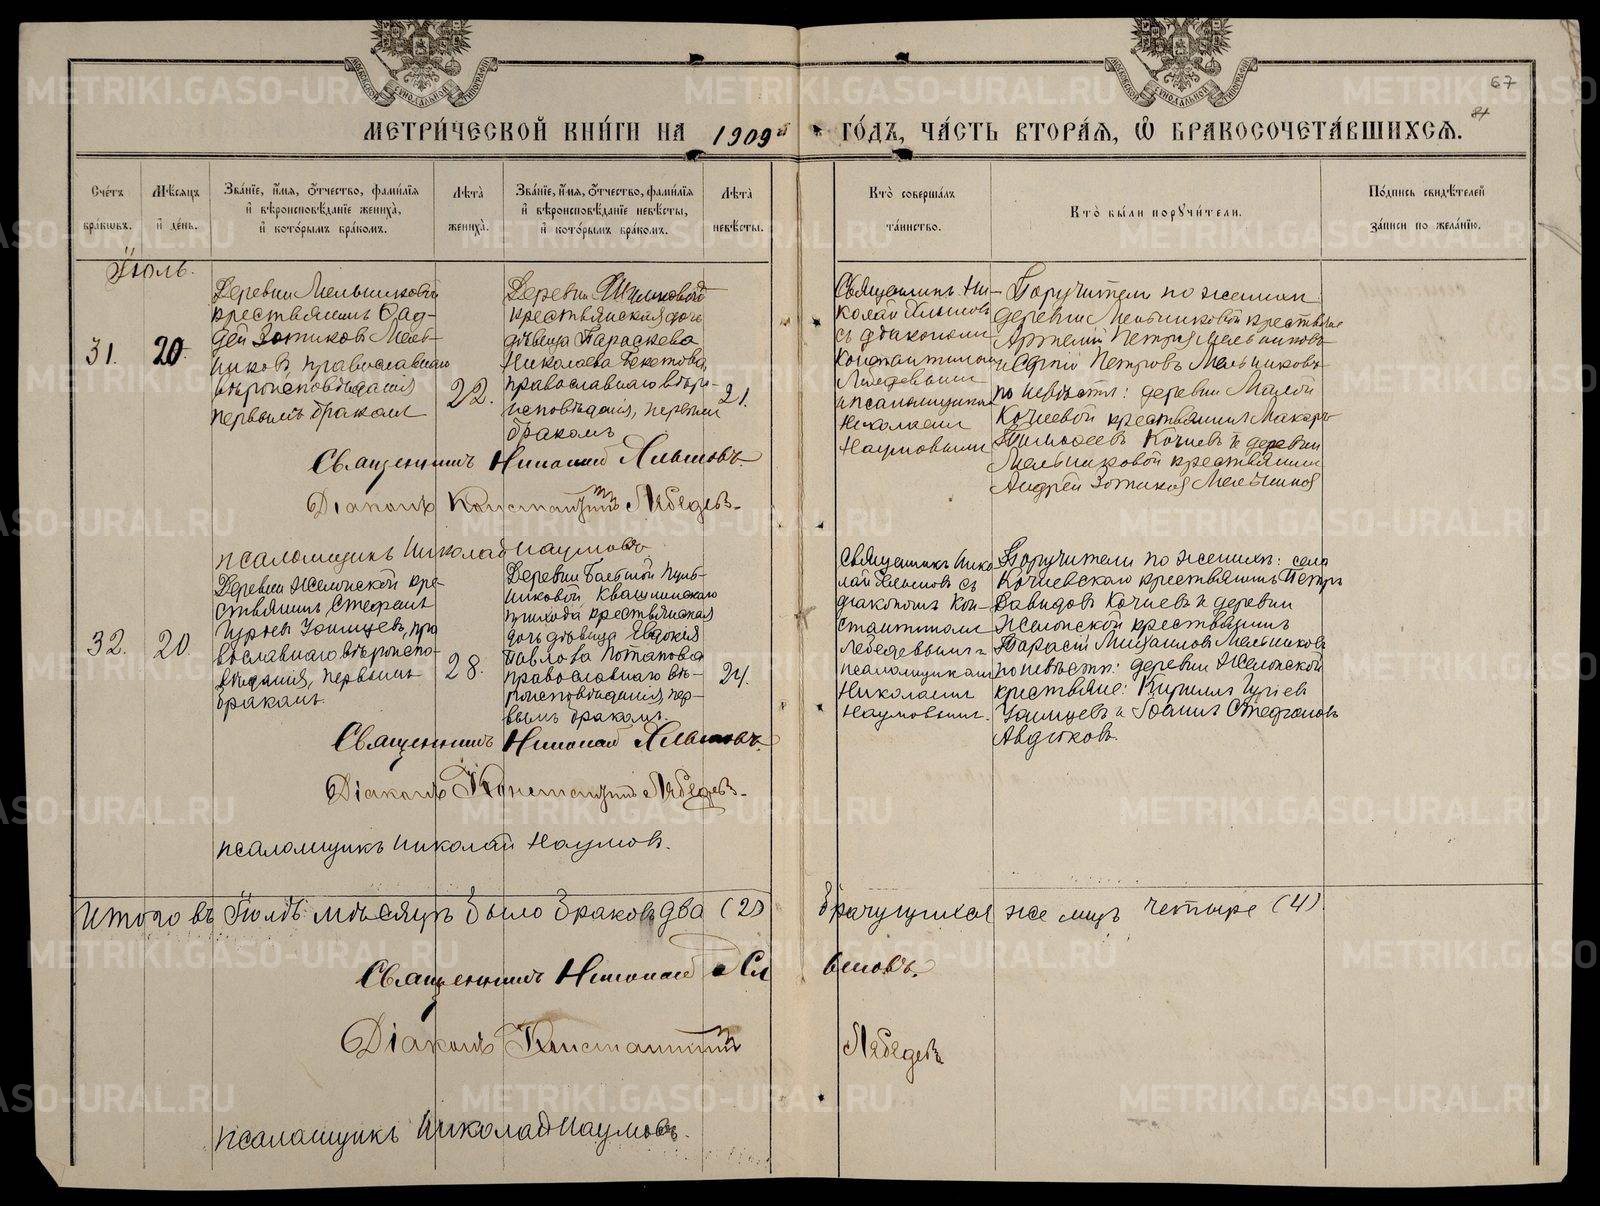 67
МЕТРИ́ЧЕСКОЙ КНИ́ГИ НА 1909й ГО́ДЪ, ЧА́СТЬ ВТОРА́Я, Ѡ҆ БРАКОСОЧЕТА́ВШИХСЯ.
Сче́тъ бра́ковъ.
Мѣ́сяцъ и҆ де́нь.
Зва́нїе, и҆́мя, ѻ҆́тчество, фами́лїя
и҆ вѣроисповѣ́данїе жениха̀,
и҆ кото́рымъ бра́комъ.
Лѣ́та жениха̀.
Зва́нїе, и҆́мя, ѻ҆́тчество, фами́лїя
и҆ вѣроисповѣ́данїе невѣ́сты,
и҆ кото́рымъ бра́комъ.
Лѣ́та невѣ́сты.
Кто̀ соверша́лъ та́инство.
Кто̀ бы́ли порꙋчи́тели.
По́дпись свидѣ́телей за́писи по жела́нїю.
Іюль.
31.
20.
Деревни Мельниковой
крестьянинъ Фад-
дей Зотиковъ Мель-
никовъ, православнаго
вѣроисповѣданія
первымъ бракомъ
22.
Деревни
крестьянская дочь
дѣвица Параскева
Николаева Бекетова,
православнаго вѣро-
исповѣданія, первымъ
бракомъ
21.
Священникъ Ни-
колай Ильиновъ
съ діакономъ
Константиномъ
Лебедевымъ
и псаломщикомъ
Николаемъ
Наумовымъ
Поручители по женихѣ
деревни Мельниковой крестьяне
Артемій Петровъ Мельниковъ
и Сергій Петровъ Мельниковъ
по невѣстѣ: деревни Малой
Кочневой крестьянинъ Макаръ
Тимофеевъ Кочневъ и деревни
Мельниковой крестьянинъ
Андрей Зотиковъ Мельниковъ
Священникъ Николай
Діаконъ Константинъ Лебедевъ
псаломщикъ Николай Наумовъ
32.
20
Деревни крe-
стьянинъ Стефанъ
Гурьевъ Уфимцевъ, пра
вославнаго вѣроиспо-
вѣданія, первымъ
бракомъ.
28.
Деревни Большой
никовой Квашнинскаго
прихода крестьянская
дочь дѣвица Евдокія
Павлова Потапова
православнаго вѣ-
роисповѣданія, пер-
вымъ бракомъ.
24.
Священникъ Нико
лай съ
діакономъ Кон-
стантиномъ
Лебедевымъ и
псаломщикомъ
Николаемъ
Наумовымъ.
Поручители по женихѣ: села
Кочневскаго крестьянинъ Петръ
Давидовъ Кочневъ и деревни
крестьянинъ
Тарасій Михайловъ Мельниковъ
по невѣстѣ: деревни
крестьяне: Кириллъ Гурьевъ
Уфимцевъ и Іоаннъ Стефановъ
Авдюковъ.
Священникъ Николай
Діаконъ Константинъ Лебедевъ
псаломщикъ Николай Наумовъ.
Итого въ Іюлѣ мѣсяцѣ было браковъ два (2) брачущихся же лицъ четыре (4).
Священникъ Николай
Діаконъ Константинъ Лебедевъ
псаломщикъ Николай Наумовъ.
METRIKI.GASO-URAL.RU